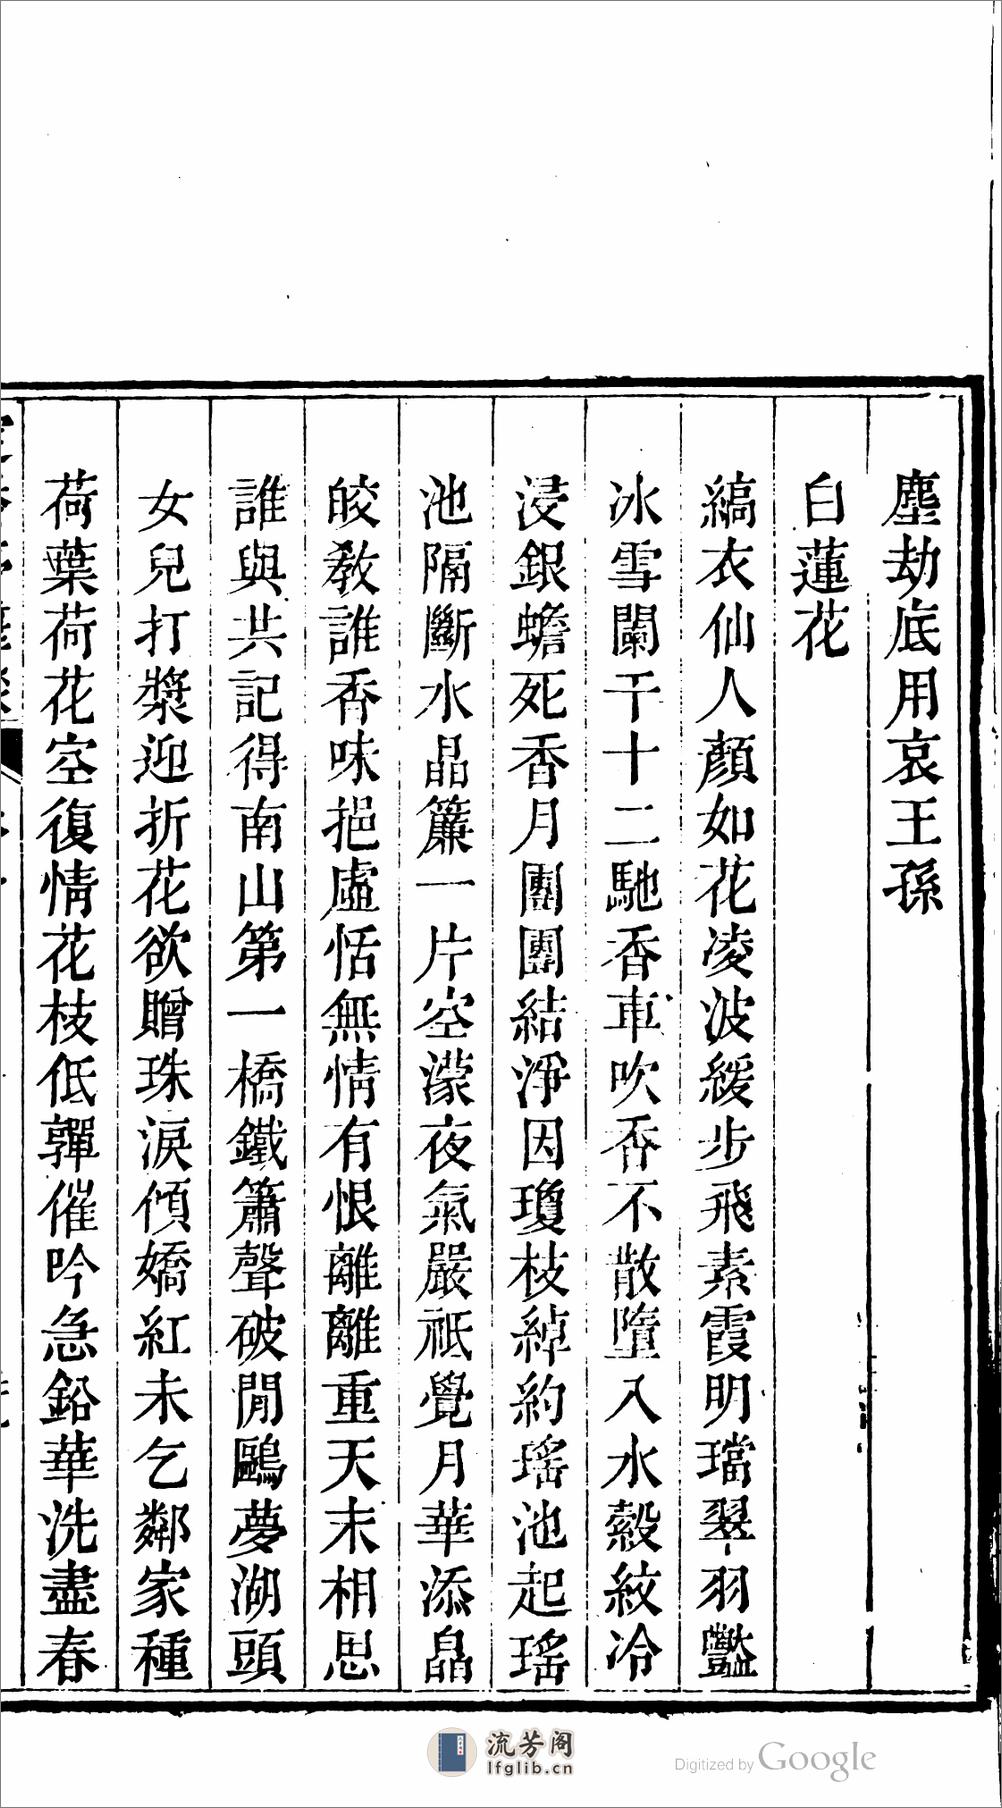 塵劫底用哀王孫
白蓮花
縞衣仙人顏如花凌波緩步飛素霞明璫翠羽豔
冰雪闌干十二馳香車吹香不散墮入水縠紋冷
浸銀蟾死香月團團結淨因瓊枝綽約瑤池起瑤
池隔斷水晶簾一片空濛夜氣嚴祗覺月華添皛
皎教誰香味挹虛恬無情有恨離離重天末相思
誰與共記得南山第一橋鐵簫聲破閒鷗夢湖頭
女兒打槳迎折花欲贈珠淚傾嬌紅未乞鄰家種
荷葉荷花空復情花枝低嚲催吟急鉛華洗盡春
流芳阁
lfglib.cn
Digitized by Google